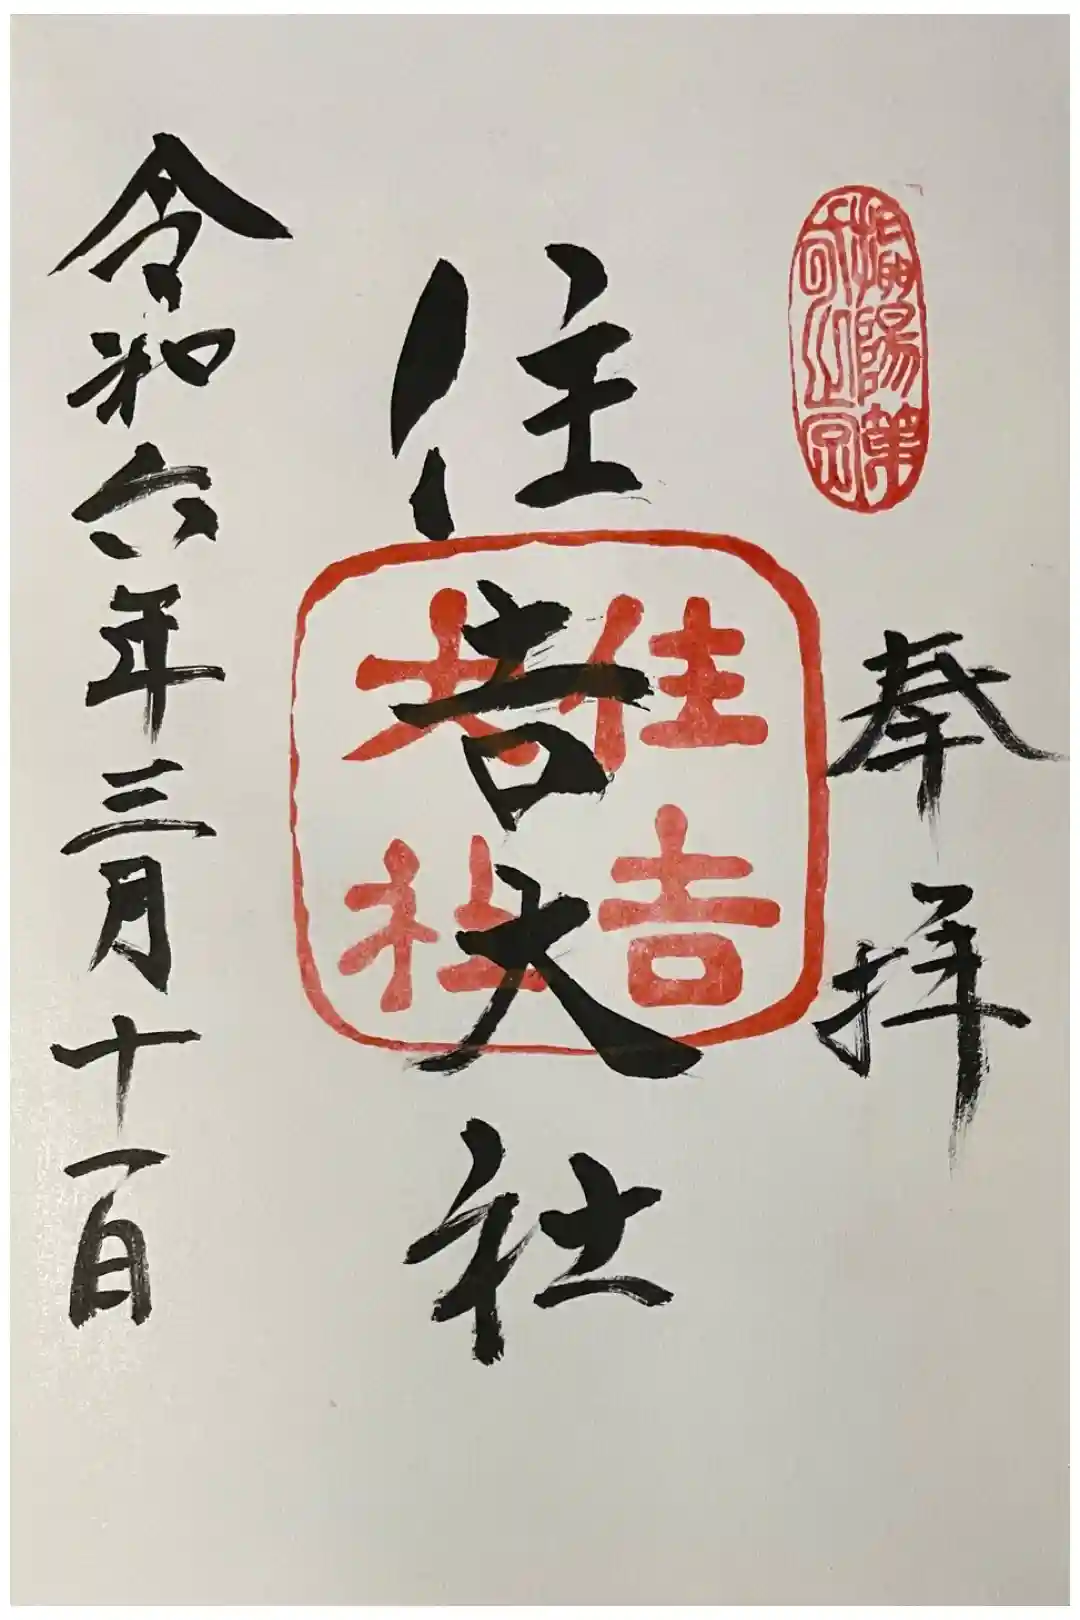 奉拝
住吉大社
住吉
大社
令和六年三月十一日